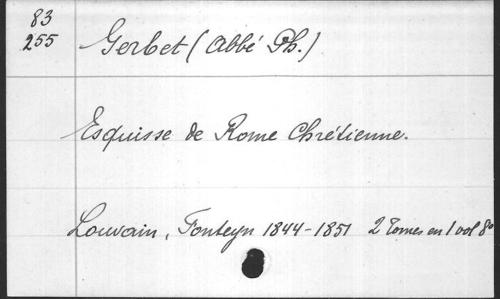 83
255
Gerbet (Abbé Ph.)
Esquisse de Rome Chrétienne.
Louvain, Fonteyn 1844-1851 2 Tomes en 1 vol 8º